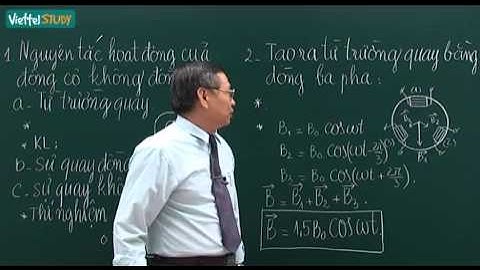 Viettel STUDY
1. Nguyên tắc hoạt động của
động cơ không đồn
a. Từ trường quay
*
* KL:
b. Sự quay đồng
c. Sự quay khô
* Thí nghiệm
2. Tạo ra từ trường quay bằng
dòng ba pha:
*
* B₁ = B₀ cosωt
B₂ = B₀ cos(ωt - 2π/3)
B₃ = B₀ cos(ωt + 2π/3)
B⃗ = B⃗₁ + B⃗₂ + B⃗₃
B⃗ = 1,5B₀ cosωt
(1)
(2)
(3)